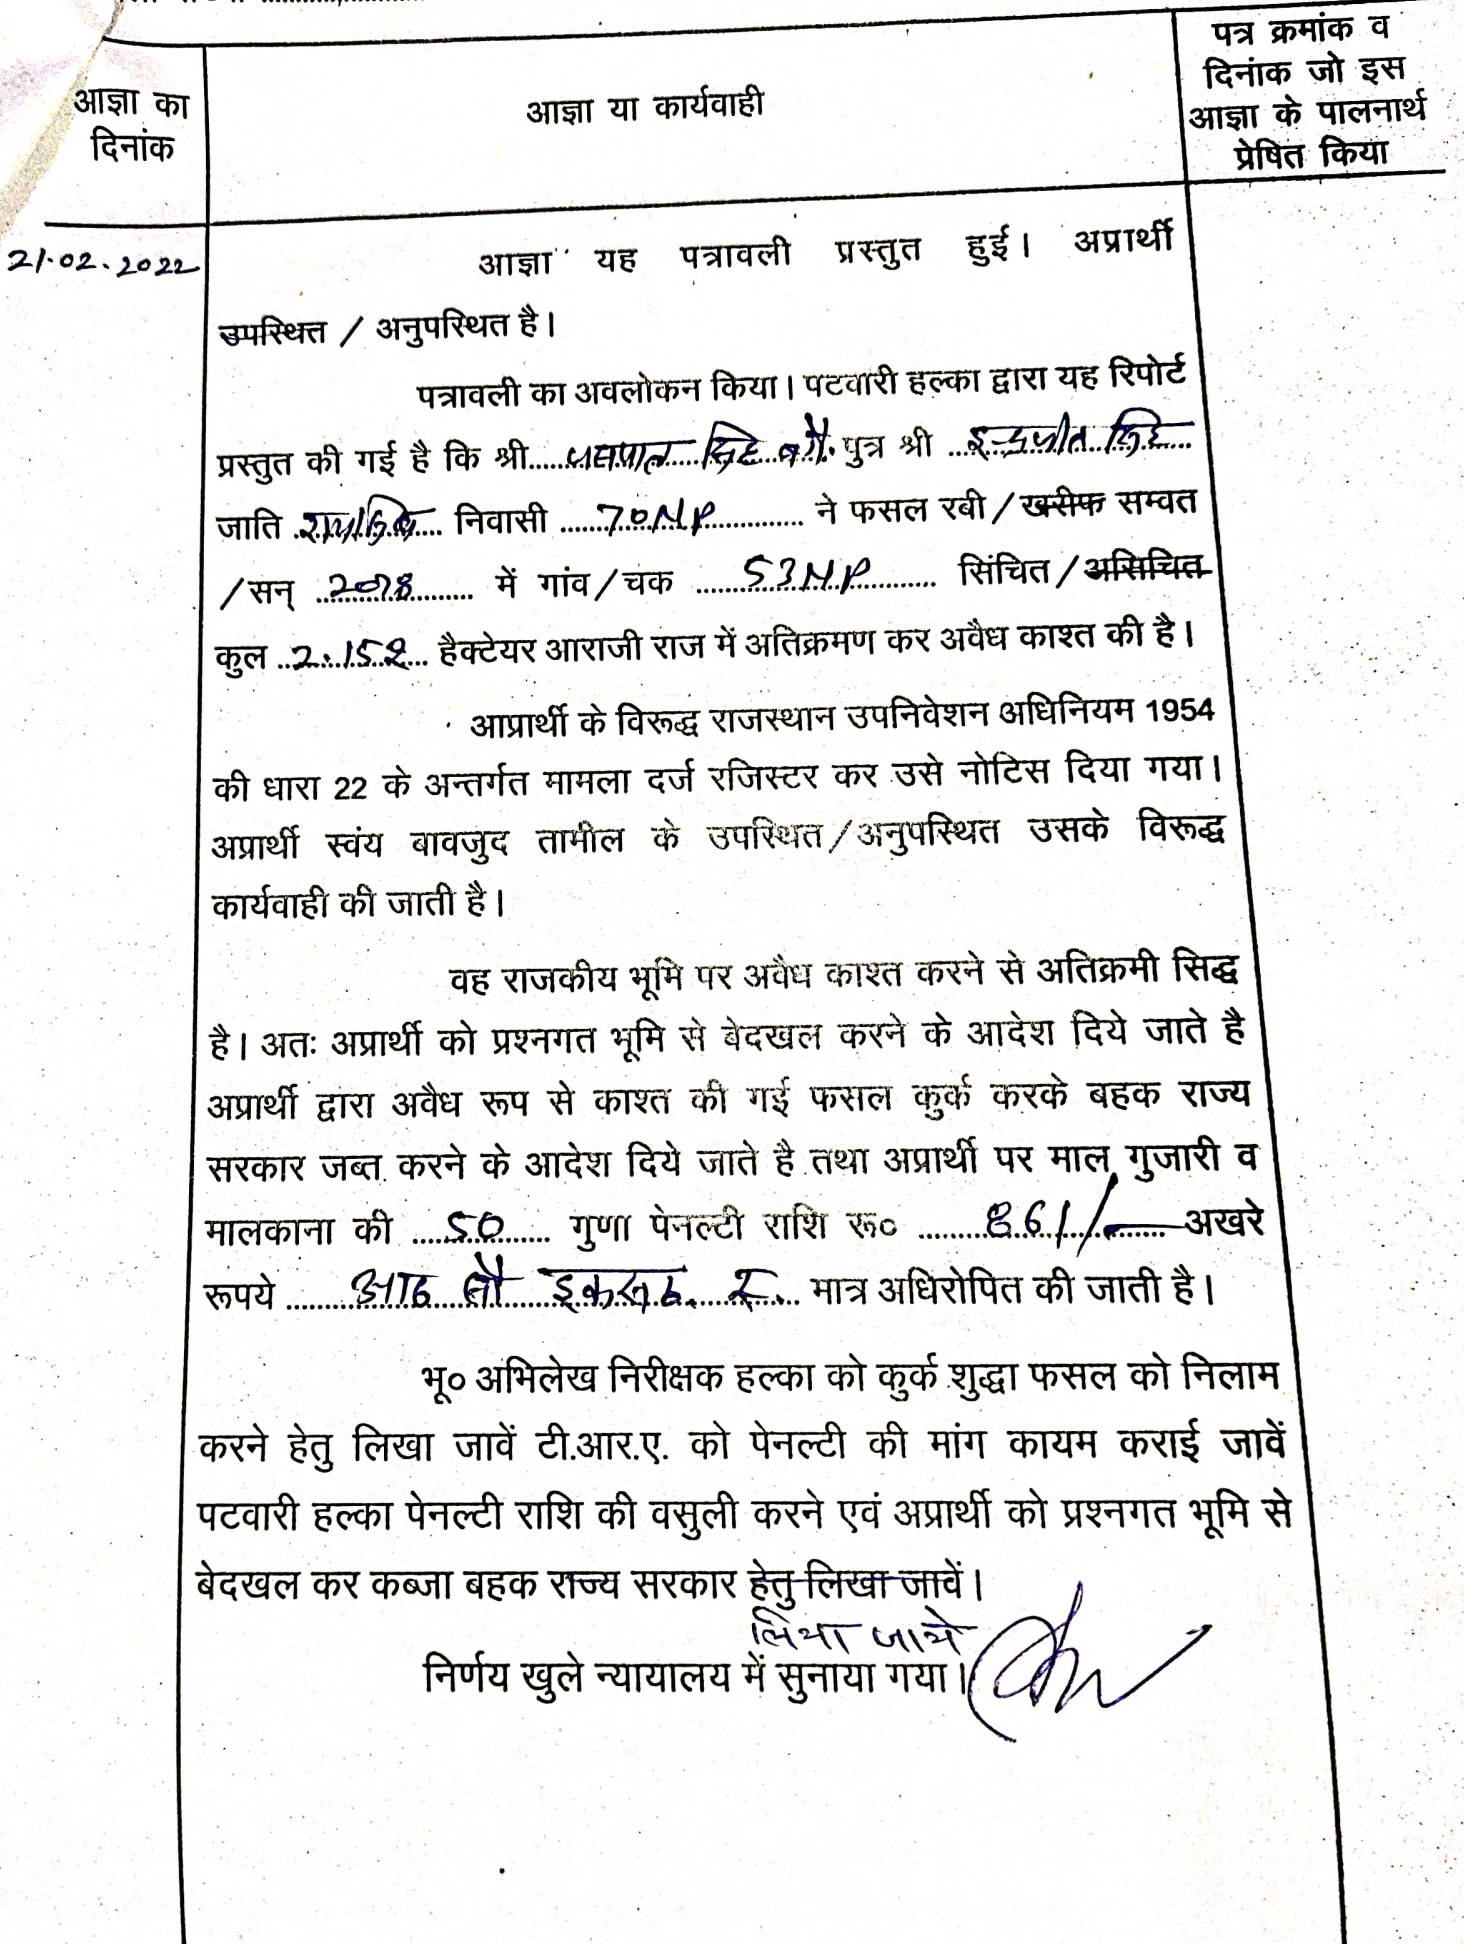 आज्ञा का
दिनांक
आज्ञा या कार्यवाही
पत्र क्रमांक व
दिनांक जो इस
आज्ञा के पालनार्थ
प्रेषित किया
21.02.2022
आज्ञा यह पत्रावली प्रस्तुत हुई। अप्रार्थी
उपस्थित / अनुपस्थित है।
पत्रावली का अवलोकन किया। पटवारी हल्का द्वारा यह रिपोर्ट
प्रस्तुत की गई है कि श्री सिंह पुत्र श्री सिंह
जाति निवासी 70NP ने फसल रबी / खरीफ सम्वत
/सन् 2078 में गांव/चक 53NP सिंचित/असिचित
कुल 2.152 हैक्टेयर आराजी राज में अतिक्रमण कर अवैध काश्त की है।
आप्रार्थी के विरूद्ध राजस्थान उपनिवेशन अधिनियम 1954
की धारा 22 के अन्तर्गत मामला दर्ज रजिस्टर कर उसे नोटिस दिया गया।
अप्रार्थी स्वंय बावजुद तामील के उपस्थित/अनुपस्थित उसके विरूद्ध
कार्यवाही की जाती है।
वह राजकीय भूमि पर अवैध काश्त करने से अतिक्रमी सिद्ध
है। अतः अप्रार्थी को प्रश्नगत भूमि से बेदखल करने के आदेश दिये जाते है
अप्रार्थी द्वारा अवैध रूप से काश्त की गई फसल कुर्क करके बहक राज्य
सरकार जब्त करने के आदेश दिये जाते है तथा अप्रार्थी पर माल गुजारी व
मालकाना की 50 गुणा पेनल्टी राशि रू० 861/- अखरे
रूपये आठ सौ इकसठ रू. मात्र अधिरोपित की जाती है।
भू० अभिलेख निरीक्षक हल्का को कुर्क शुद्धा फसल को निलाम
करने हेतु लिखा जावें टी.आर.ए. को पेनल्टी की मांग कायम कराई जावें
पटवारी हल्का पेनल्टी राशि की वसुली करने एवं अप्रार्थी को प्रश्नगत भूमि से
बेदखल कर कब्जा बहक राज्य सरकार हेतु लिखा जावें।
लिया जाये
निर्णय खुले न्यायालय में सुनाया गया।